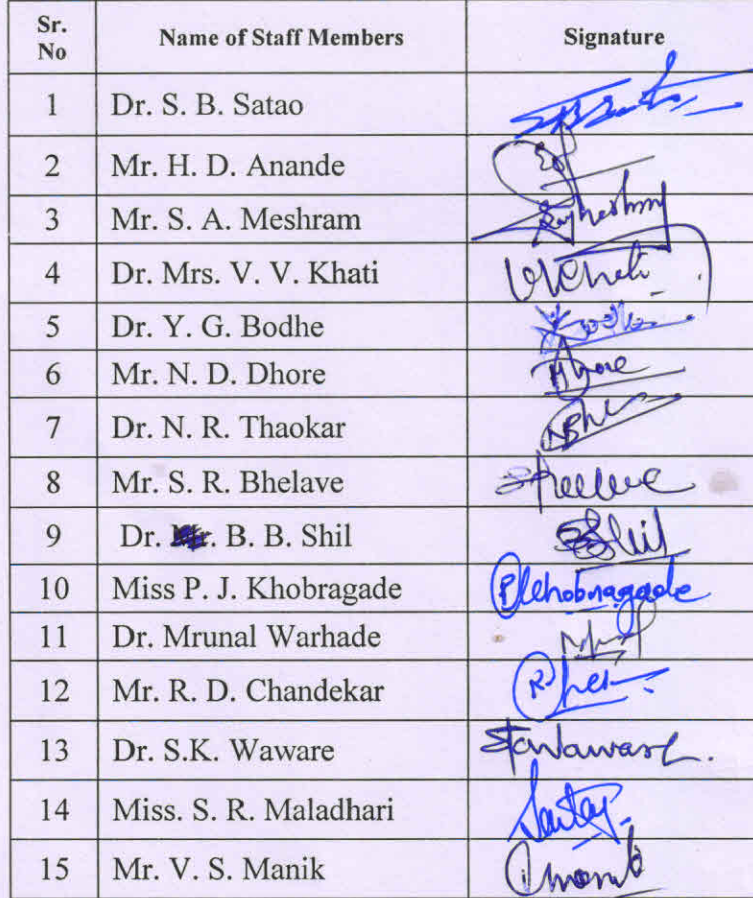 Sr. No Name of Staff Members Signature
1 Dr. S. B. Satao
2 Mr. H. D. Anande
3 Mr. S. A. Meshram
4 Dr. Mrs. V. V. Khati
5 Dr. Y. G. Bodhe
6 Mr. N. D. Dhore Dhore
7 Dr. N. R. Thaokar
8 Mr. S. R. Bhelave
9 Dr. B. B. Shil Shil
10 Miss P. J. Khobragade PKhobragade
11 Dr. Mrunal Warhade
12 Mr. R. D. Chandekar
13 Dr. S.K. Waware
14 Miss. S. R. Maladhari
15 Mr. V. S. Manik